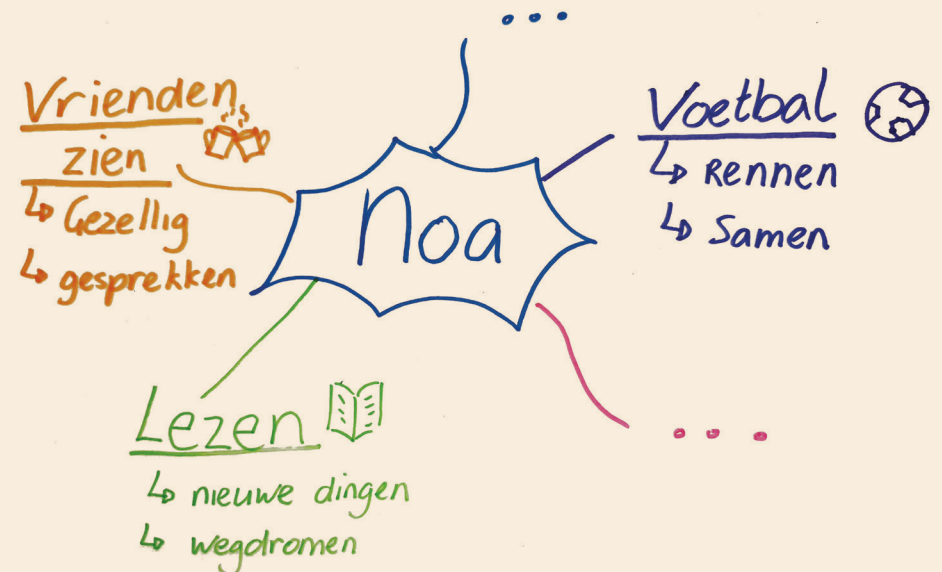 ...
Vrienden
zien
↳ Gezellig
↳ gesprekken
Noa
Voetbal
↳ Rennen
↳ Samen
Lezen
↳ nieuwe dingen
↳ wegdromen
...